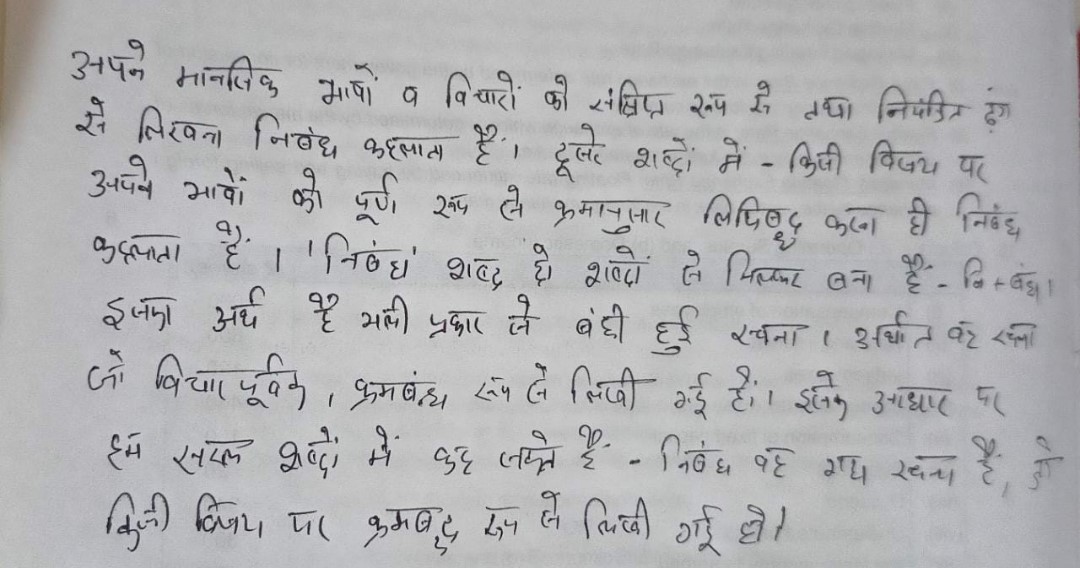 अपने मानसिक भावों व विचारों को संक्षिप्त रूप से तथा नियंत्रित ढ़ंग
से लिखना निबंध कहलाता है। दूसरे शब्दों में - किसी विषय पर
अपने भावों को पूर्ण रूप से क्रमानुसार लिपिबद्ध करना ही निबंध
कहलाता है। 'निबंध' शब्द दो शब्दों से मिलकर बना है - नि + बंध।
इसका अर्थ है भली प्रकार से बंधी हुई रचना। अर्थात वह रचना
जो विचारपूर्वक, क्रमबंध्द रूप से लिखी गई हो। इसके आधार पर
हम सरल शब्दों में कह सकते हैं - निबंध वह गद्य रचना है, जो
किसी विषय पर क्रमबद्ध रूप से लिखी गई हो।